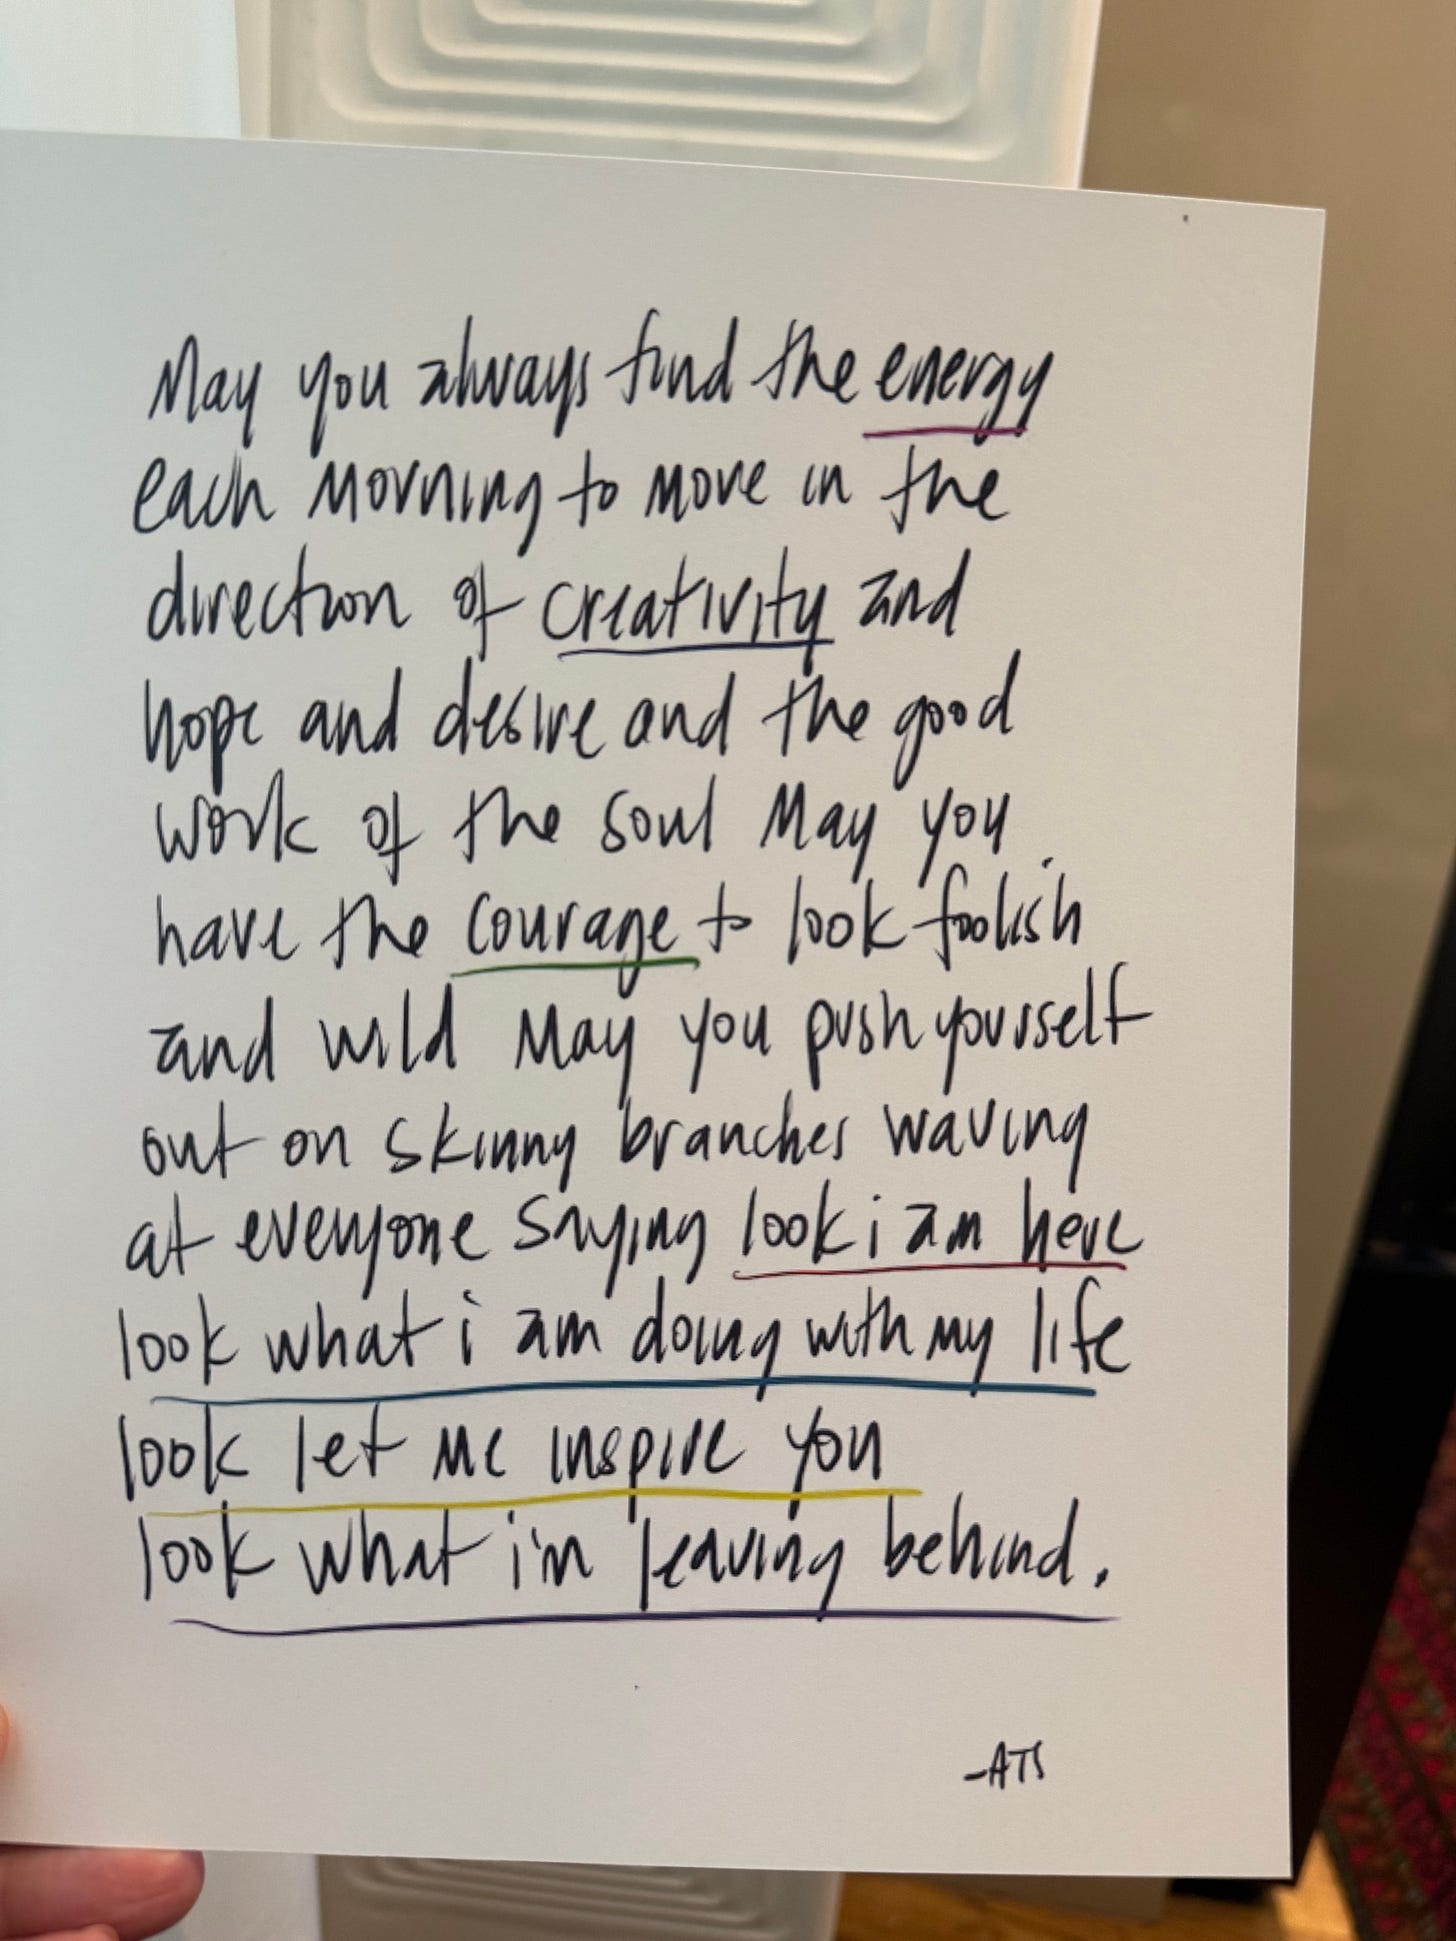 May you always find the energy
each morning to move in the
direction of creativity and
hope and desire and the good
work of the soul May you
have the courage to look foolish
and wild May you push yourself
out on skinny branches waving
at everyone saying look i am here
look what i am doing with my life
look let me inspire you
look what i'm leaving behind.
-ATS